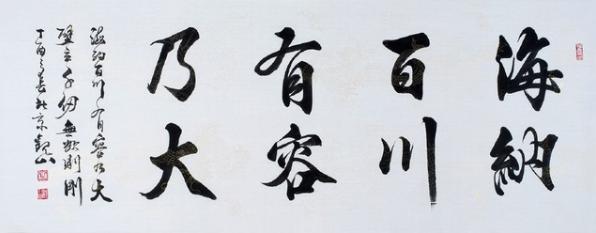 海納
百川
有容
乃大
海納百川有容乃大
壁立千仞無欲則剛
丁酉之春北京觀山